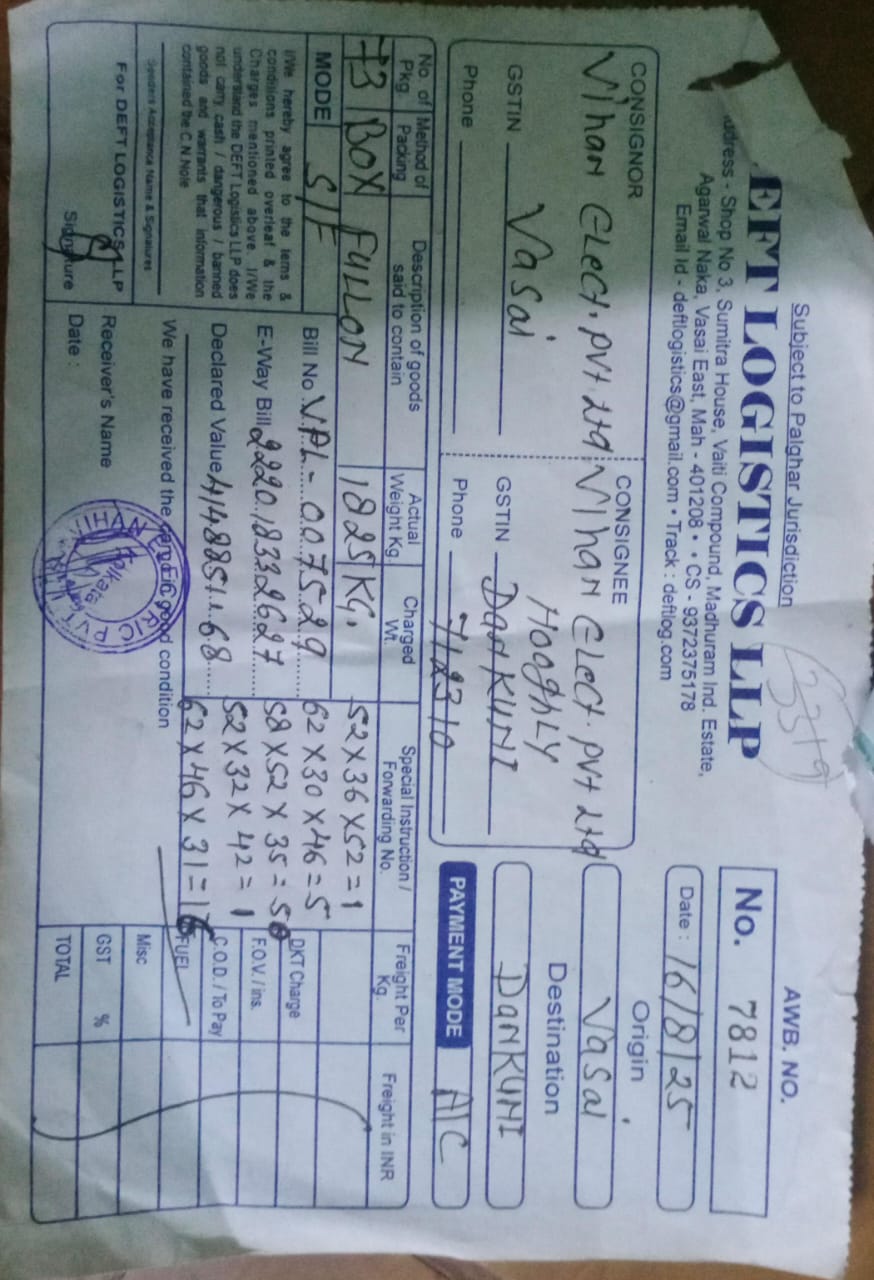 Subject to Palghar Jurisdiction
EFT LOGISTICS LLP
Address - Shop No 3, Sumitra House, Vaiti Compound, Madhuram Ind. Estate,
Agarwal Naka, Vasai East, Mah - 401208 • • CS - 9372375178
Email Id - deftlogistics@gmail.com • Track : deftlog.com
AWB. NO.
No. 7812
Date : 16/8/25
CONSIGNOR
Vihan Elect. Pvt. Ltd
Vasai
GSTIN
Phone
CONSIGNEE
Vihan Elect. Pvt Ltd
Hooghly
GSTIN DANKUNI
Phone 712310
Origin
Vasai
Destination
DANKUNI
PAYMENT MODE A/C
No. of Pkg. Method of Packing Description of goods said to contain Actual Weight Kg. Charged Wt. Special Instruction / Forwarding No. Freight Per Kg. Freight in INR
73 BOX FULLON 1825 KG.
52 X 36 X 52 = 1
62 X 30 X 46 = 5
58 X 52 X 35 = 50
52 X 32 X 42 = 1
62 X 46 X 31 = 16
MODE S/F
Bill No. VPL - 007529
E-Way Bill 222018332627
Declared Value 4148851.68
DKT Charge
F.O.V. / ins.
C.O.D. / To Pay
FUEL
Misc
GST %
TOTAL
I/We hereby agree to the tems &
conditions printed overleaf & the
Charges mentioned above. I/We
understand the DEFT Logistics LLP does
not carry cash / dangerous / banned
goods and warrants that information
contained the C.N.Note
Senders Acceptance Name & Signatures
For DEFT LOGISTICS LLP
Signature
We have received the good condition
Receiver's Name
Date :